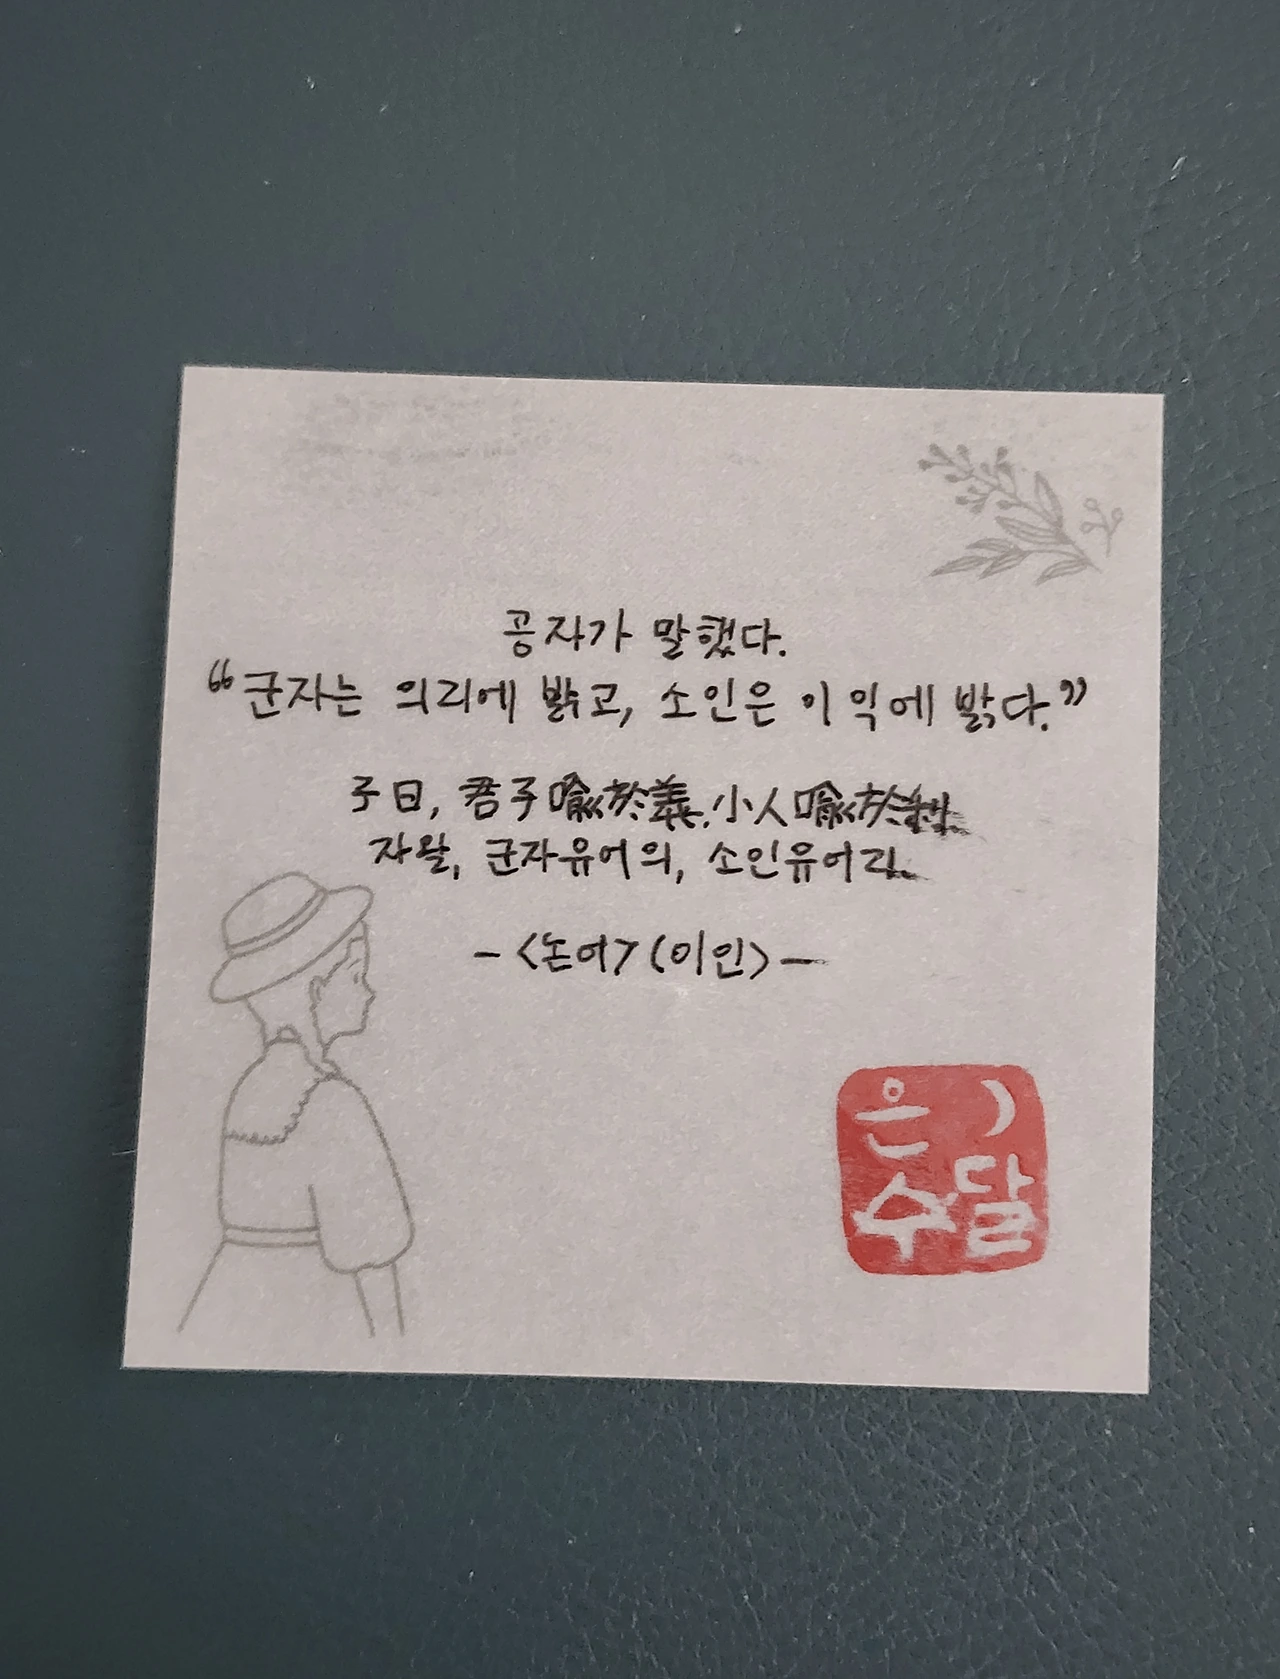 공자가 말했다.
“군자는 의리에 밝고, 소인은 이익에 밝다.”
子曰, 君子喩於義, 小人喩於利.
자왈, 군자유어의, 소인유어리.
-<논어>(이인)-
은
수달